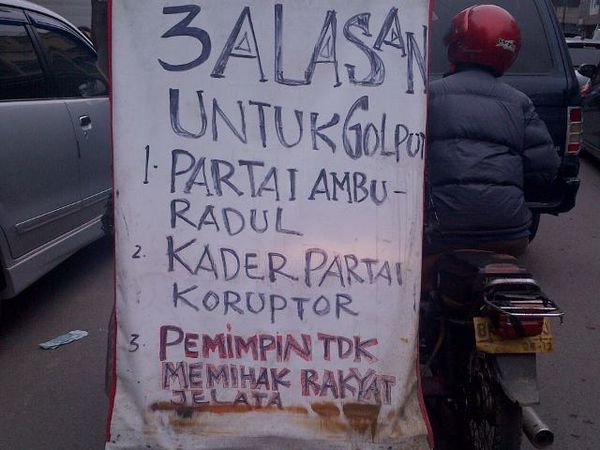 3 ALASAN
UNTUK GOLPUT
1. PARTAI AMBU-
RADUL
2. KADER PARTAI
KORUPTOR
3. PEMIMPIN TDK
MEMIHAK RAKYAT
JELATA